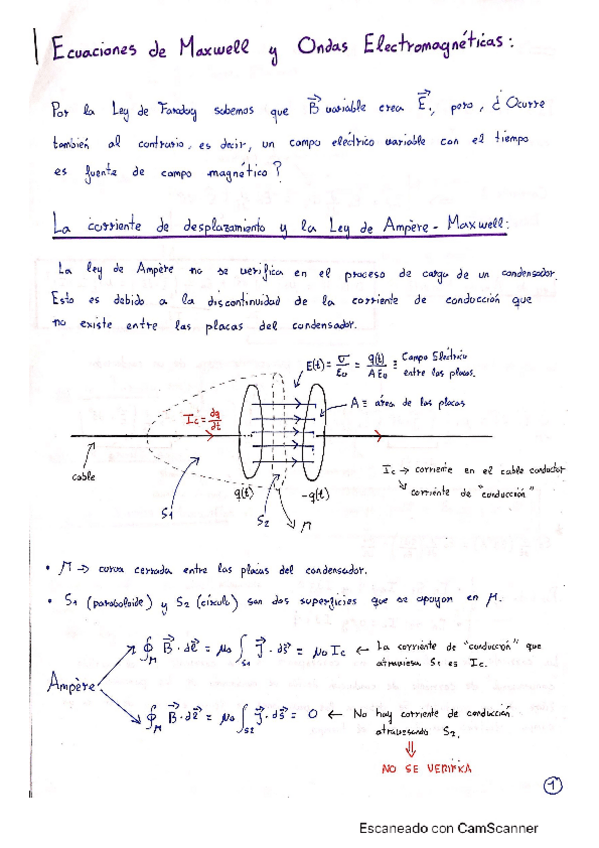 Ecuaciones de Maxwell y Ondas Electromagnéticas:
Por la Ley de Faraday sabemos que B⃗ variable crea E⃗., pero, ¿Ocurre
también al contrario, es decir, un campo eléctrico variable con el tiempo
es fuente de campo magnético?
La corriente de desplazamiento y la Ley de Ampère - Maxwell:
La ley de Ampère no se verifica en el proceso de carga de un condensador.
Esto es debido a la discontinuidad de la corriente de conducción que
no existe entre las placas del condensador.
E(t) = σ/ε₀ = q(t)/Aε₀ ≡ Campo Eléctrico
entre las placas.
A ≡ área de las placas
Ic = dq/dt
Ic → corriente en el cable conductor
↳ corriente de "conducción"
cable
q(t)
-q(t)
S1
S2
Γ
• Γ → curva cerrada entre las placas del condensador.
• S1 (paraboloide) y S2 (círculo) son dos superficies que se apoyan en Γ.
∮Γ B⃗·dℓ⃗ = μ₀ ∫S1 J⃗·ds⃗ = μ₀ Ic ← La corriente de "conducción" que
atraviesa S1 es Ic.
Ampère
∮Γ B⃗·dℓ⃗ = μ₀ ∫S2 J⃗·ds⃗ = 0 ← No hay corriente de conducción
atravesando S2.
⇓
NO SE VERIFICA
1
Escaneado con CamScanner